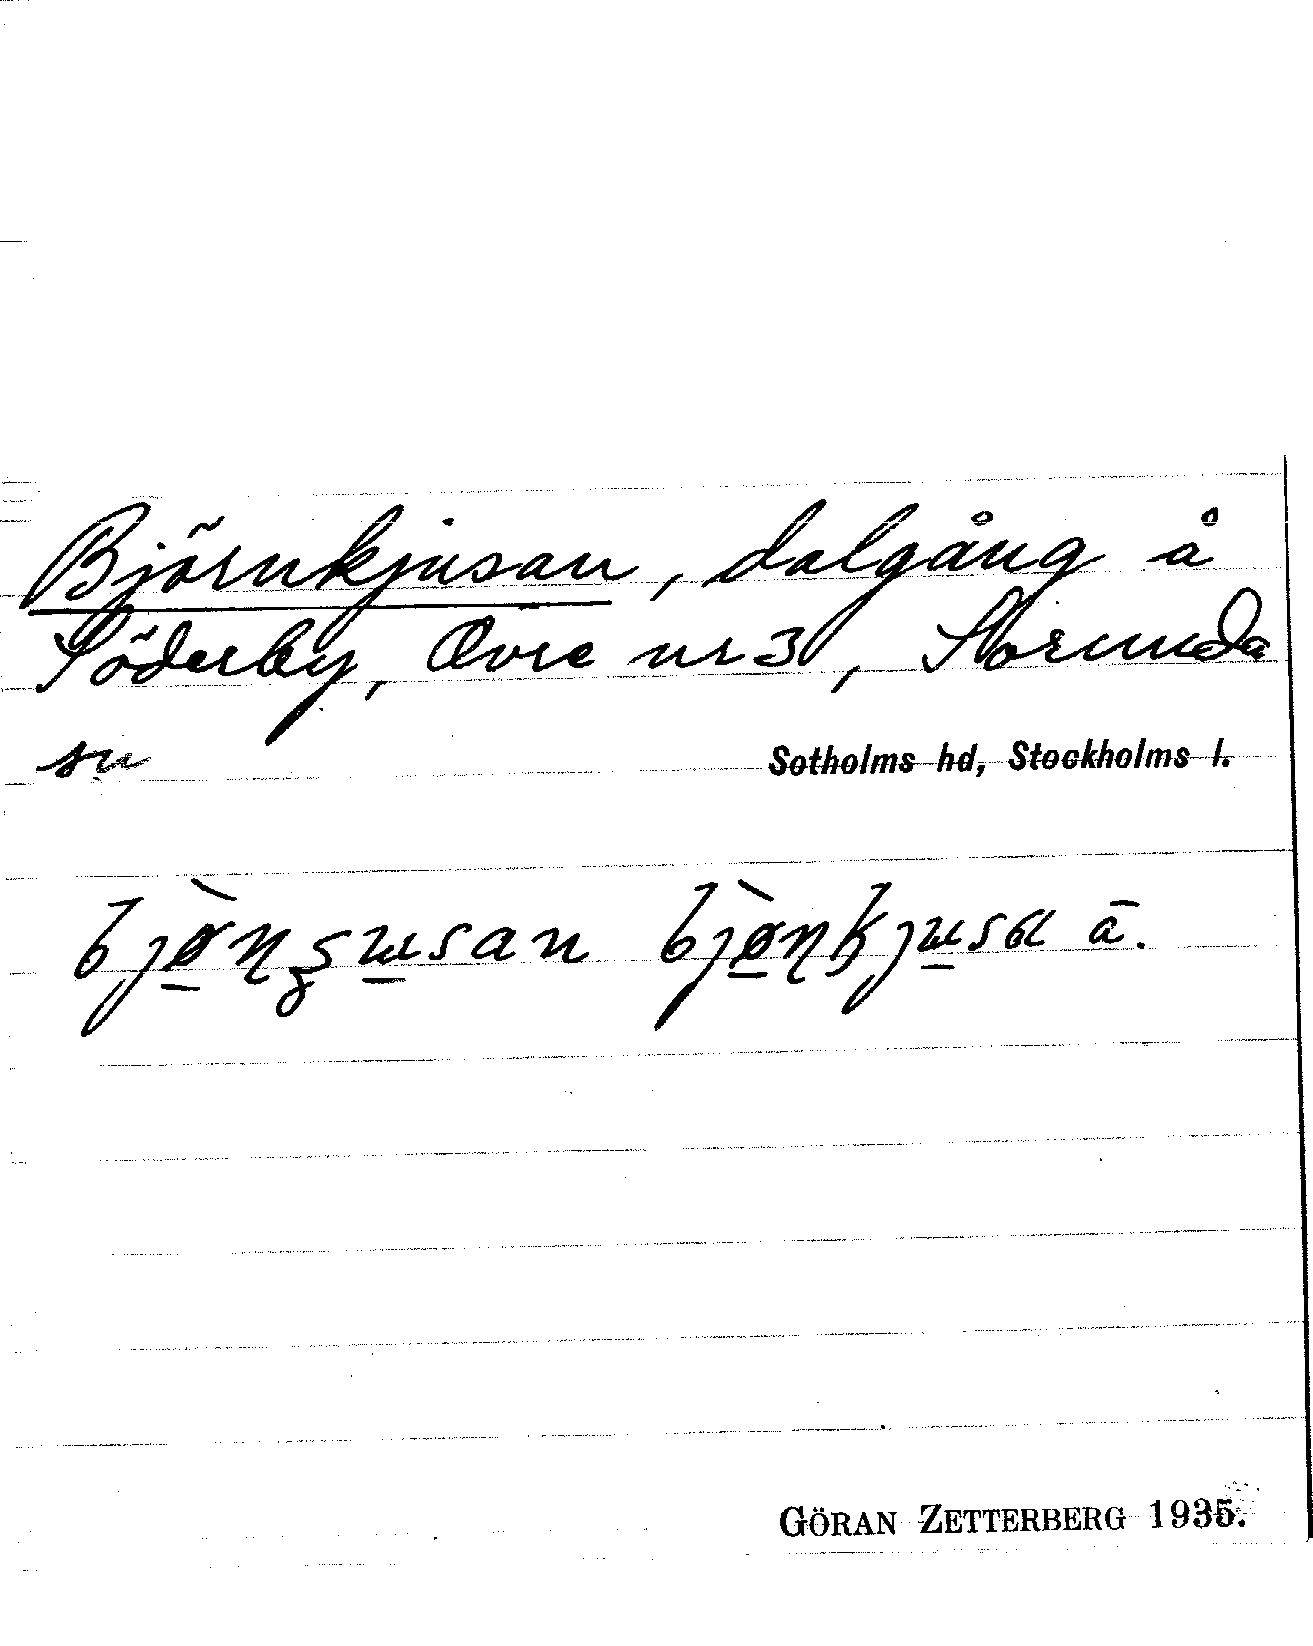 Björnkjusan, dalgång å
Söderby, Övre nr 3, Sorunda
sn
Sotholms hd, Stockholms l.
bjø̀nʂusan bjø̀nkjusa ā.
GÖRAN ZETTERBERG 1935.